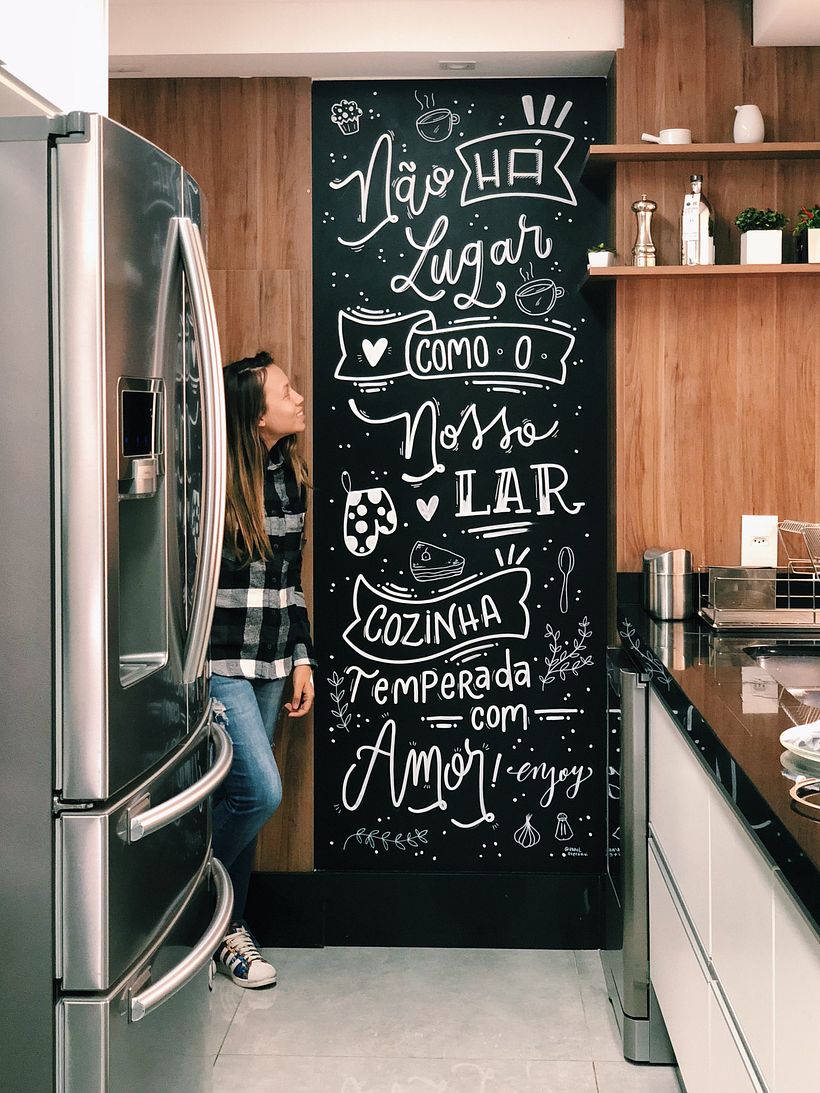 Não HÁ
Lugar
COMO · O ·
Nosso
LAR
COZINHA
Temperada
com
Amor! enjoy